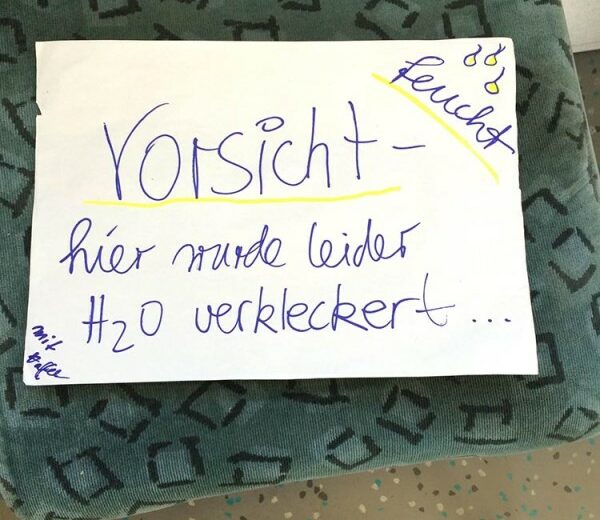 feucht
Vorsicht -
hier wurde leider
H2O verkleckert...
mit
Kaffee